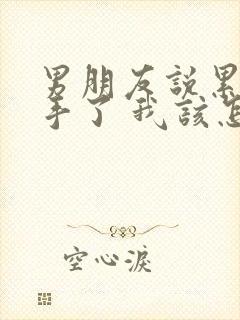 男朋友説累
手了我該怎
空心淚